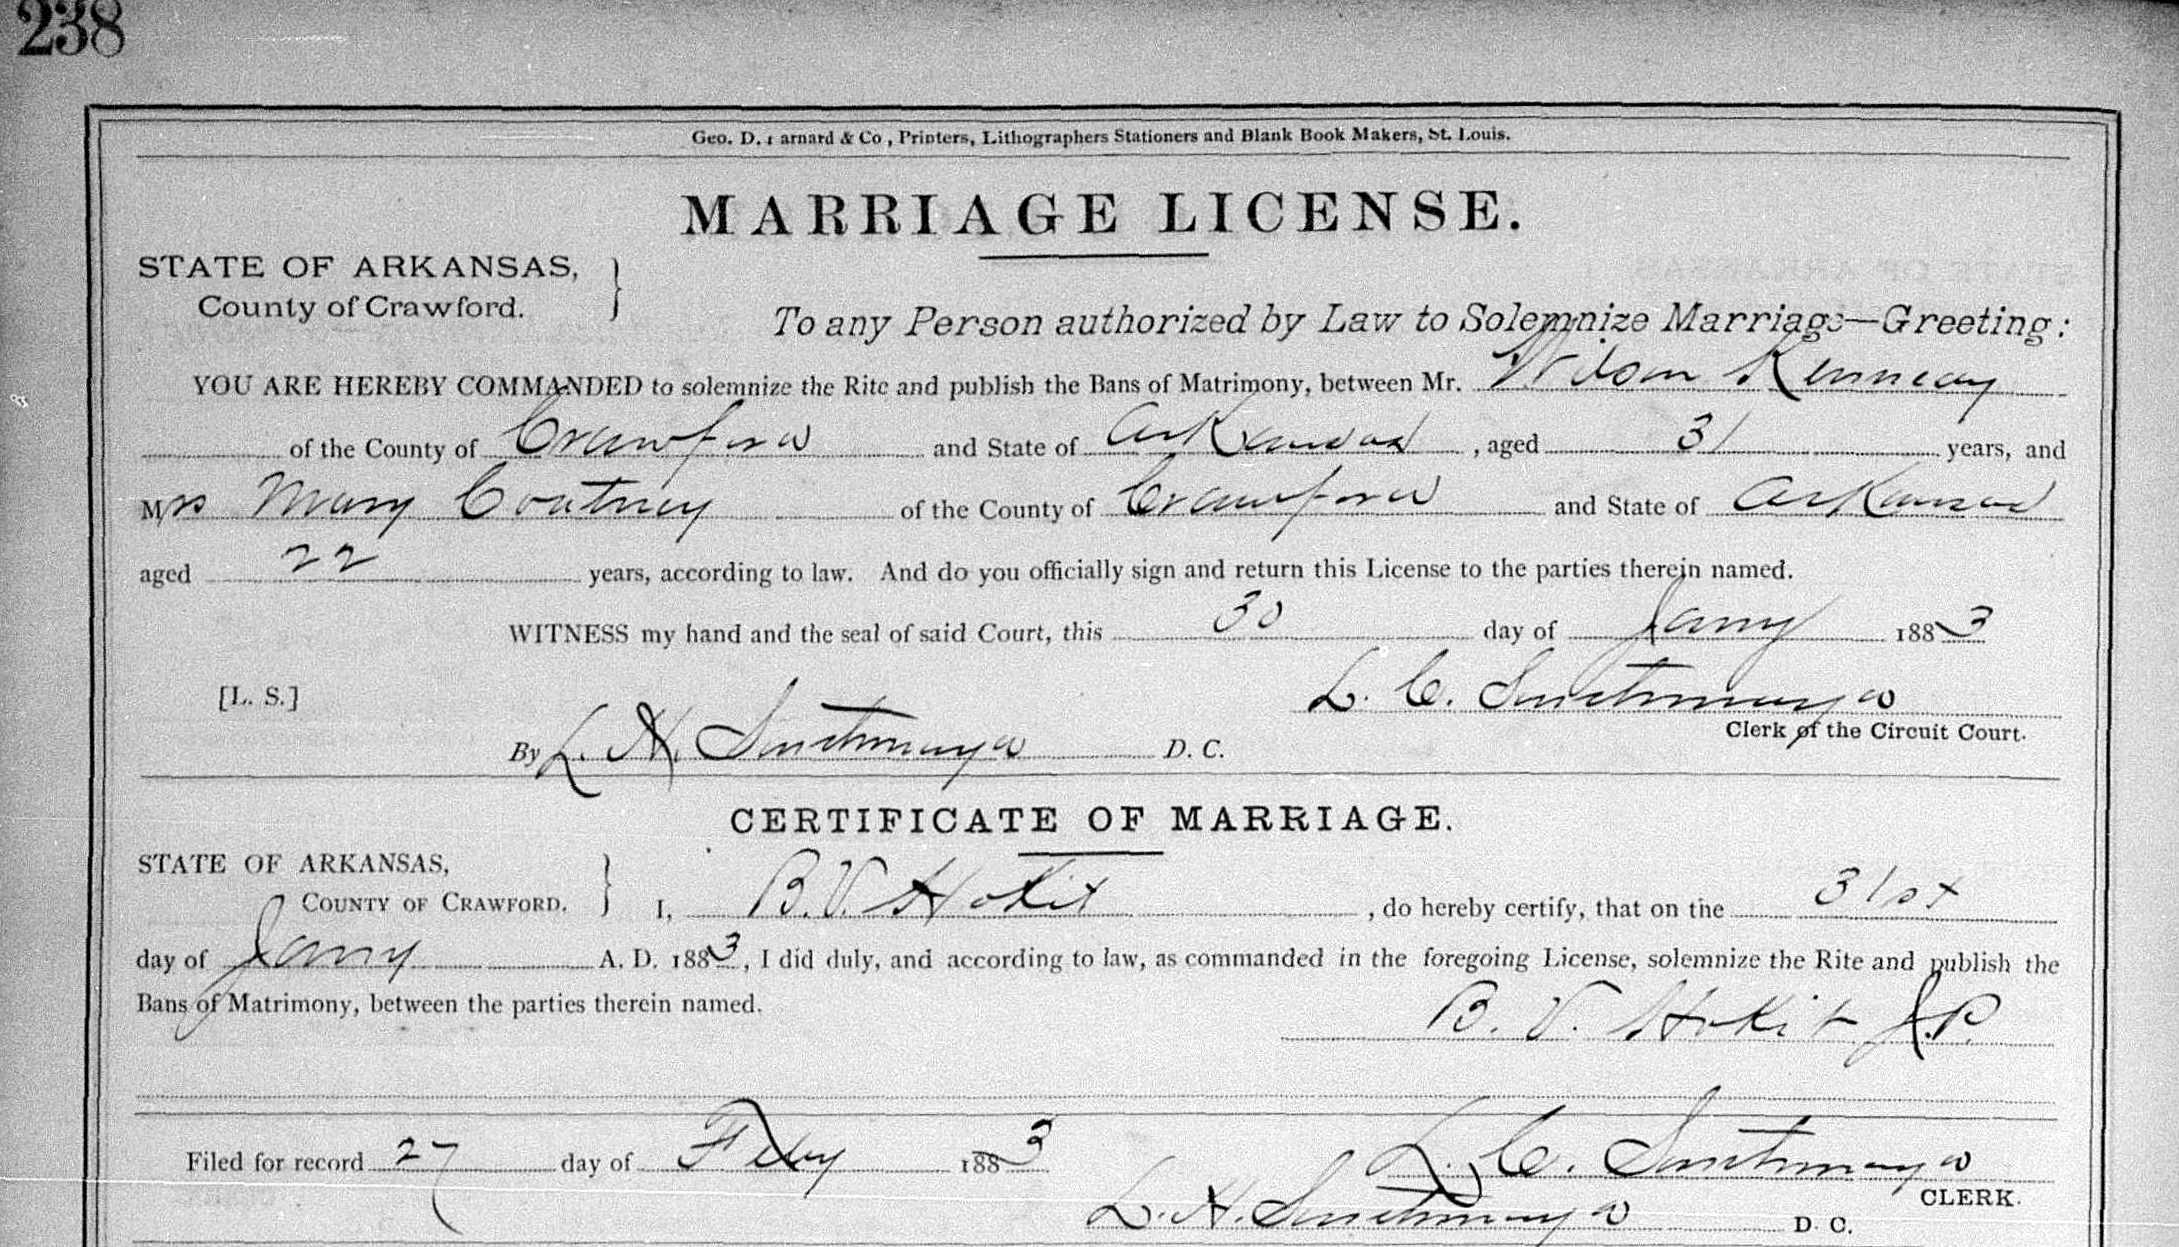 238
Geo. D. Barnard & Co., Printers, Lithographers Stationers and Blank Book Makers, St. Louis.
MARRIAGE LICENSE.
STATE OF ARKANSAS,
County of Crawford.
To any Person authorized by Law to Solemnize Marriage—Greeting:
YOU ARE HEREBY COMMANDED to solemnize the Rite and publish the Bans of Matrimony, between Mr. Wilson Kennedy
of the County of Crawford and State of Arkansas, aged 31 years, and
Mrs Mary Coatney of the County of Crawford and State of Arkansas
aged 22 years, according to law. And do you officially sign and return this License to the parties therein named.
WITNESS my hand and the seal of said Court, this 30 day of Jany 1883
[L. S.] L. C. Southmayd
Clerk of the Circuit Court.
By L. H. Southmayd D. C.
CERTIFICATE OF MARRIAGE.
STATE OF ARKANSAS,
COUNTY OF CRAWFORD. I, B. V. Hokit, do hereby certify, that on the 31st
day of Jany A. D. 1883, I did duly, and according to law, as commanded in the foregoing License, solemnize the Rite and publish the
Bans of Matrimony, between the parties therein named.
B. V. Hokit J.P.
Filed for record 27 day of Feby 1883 L. C. Southmayd
CLERK.
L. H. Southmayd D. C.